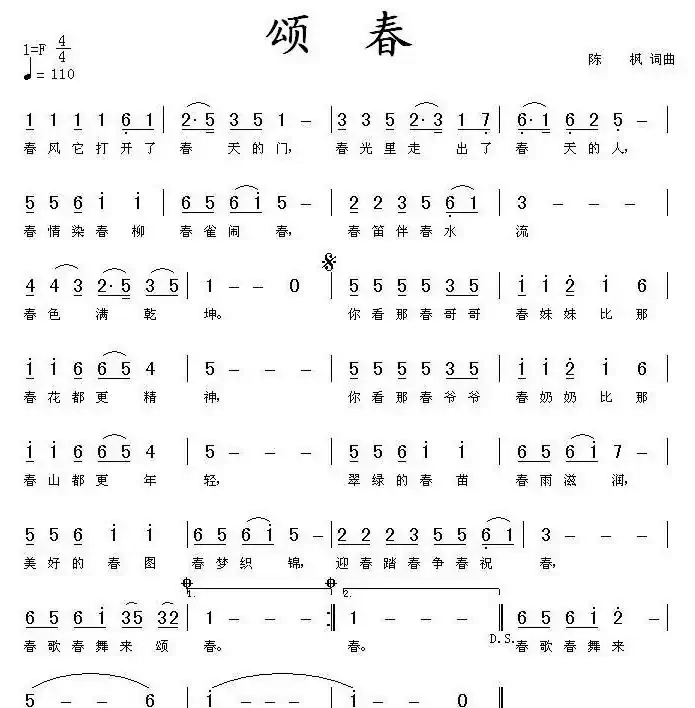 颂 春
1=F 4/4
♩= 110
陈 枫 词曲
1 1 1 1 6 1 | 2· 5 3 5 1 – | 3 3 5 2· 3 1 7 | 6· 1 6 2 5 – |
春风它打开了 春 天的门, 春光里走 出了 春 天的人,
5 5 6 i i | 6 5 6 i 5 – | 2 2 3 5 6 1 | 3 – – – |
春情染春柳 春雀闹春, 春笛伴春水 流
4 4 3 2· 5 3 5 | 1 – – 0 | 5 5 5 5 3 5 | i i 2 i 6 |
春色 满乾 坤。 你看那春哥哥 春妹妹比那
i i 6 6 5 4 | 5 – – – | 5 5 5 5 3 5 | i i 2 i 6 |
春花都更精 神, 你看那春爷爷 春奶奶比那
i i 6 6 5 4 | 5 – – – | 5 5 6 i i | 6 5 6 i 7 – |
春山都更年 轻, 翠绿的春苗 春雨滋润,
5 5 6 i i | 6 5 6 i 5 – | 2 2 2 3 5 5 6 1 | 3 – – – |
美好的春图 春梦织锦, 迎春踏春争春祝 春,
1. 2.
6 5 6 i 3 5 3 2 | 1 – – – :| 1 – – – || 6 5 6 i 2 –
D.S.
春歌春舞来颂 春。 春。 春歌春舞来
5 – – 6 | i – – – | i – – 0 ||